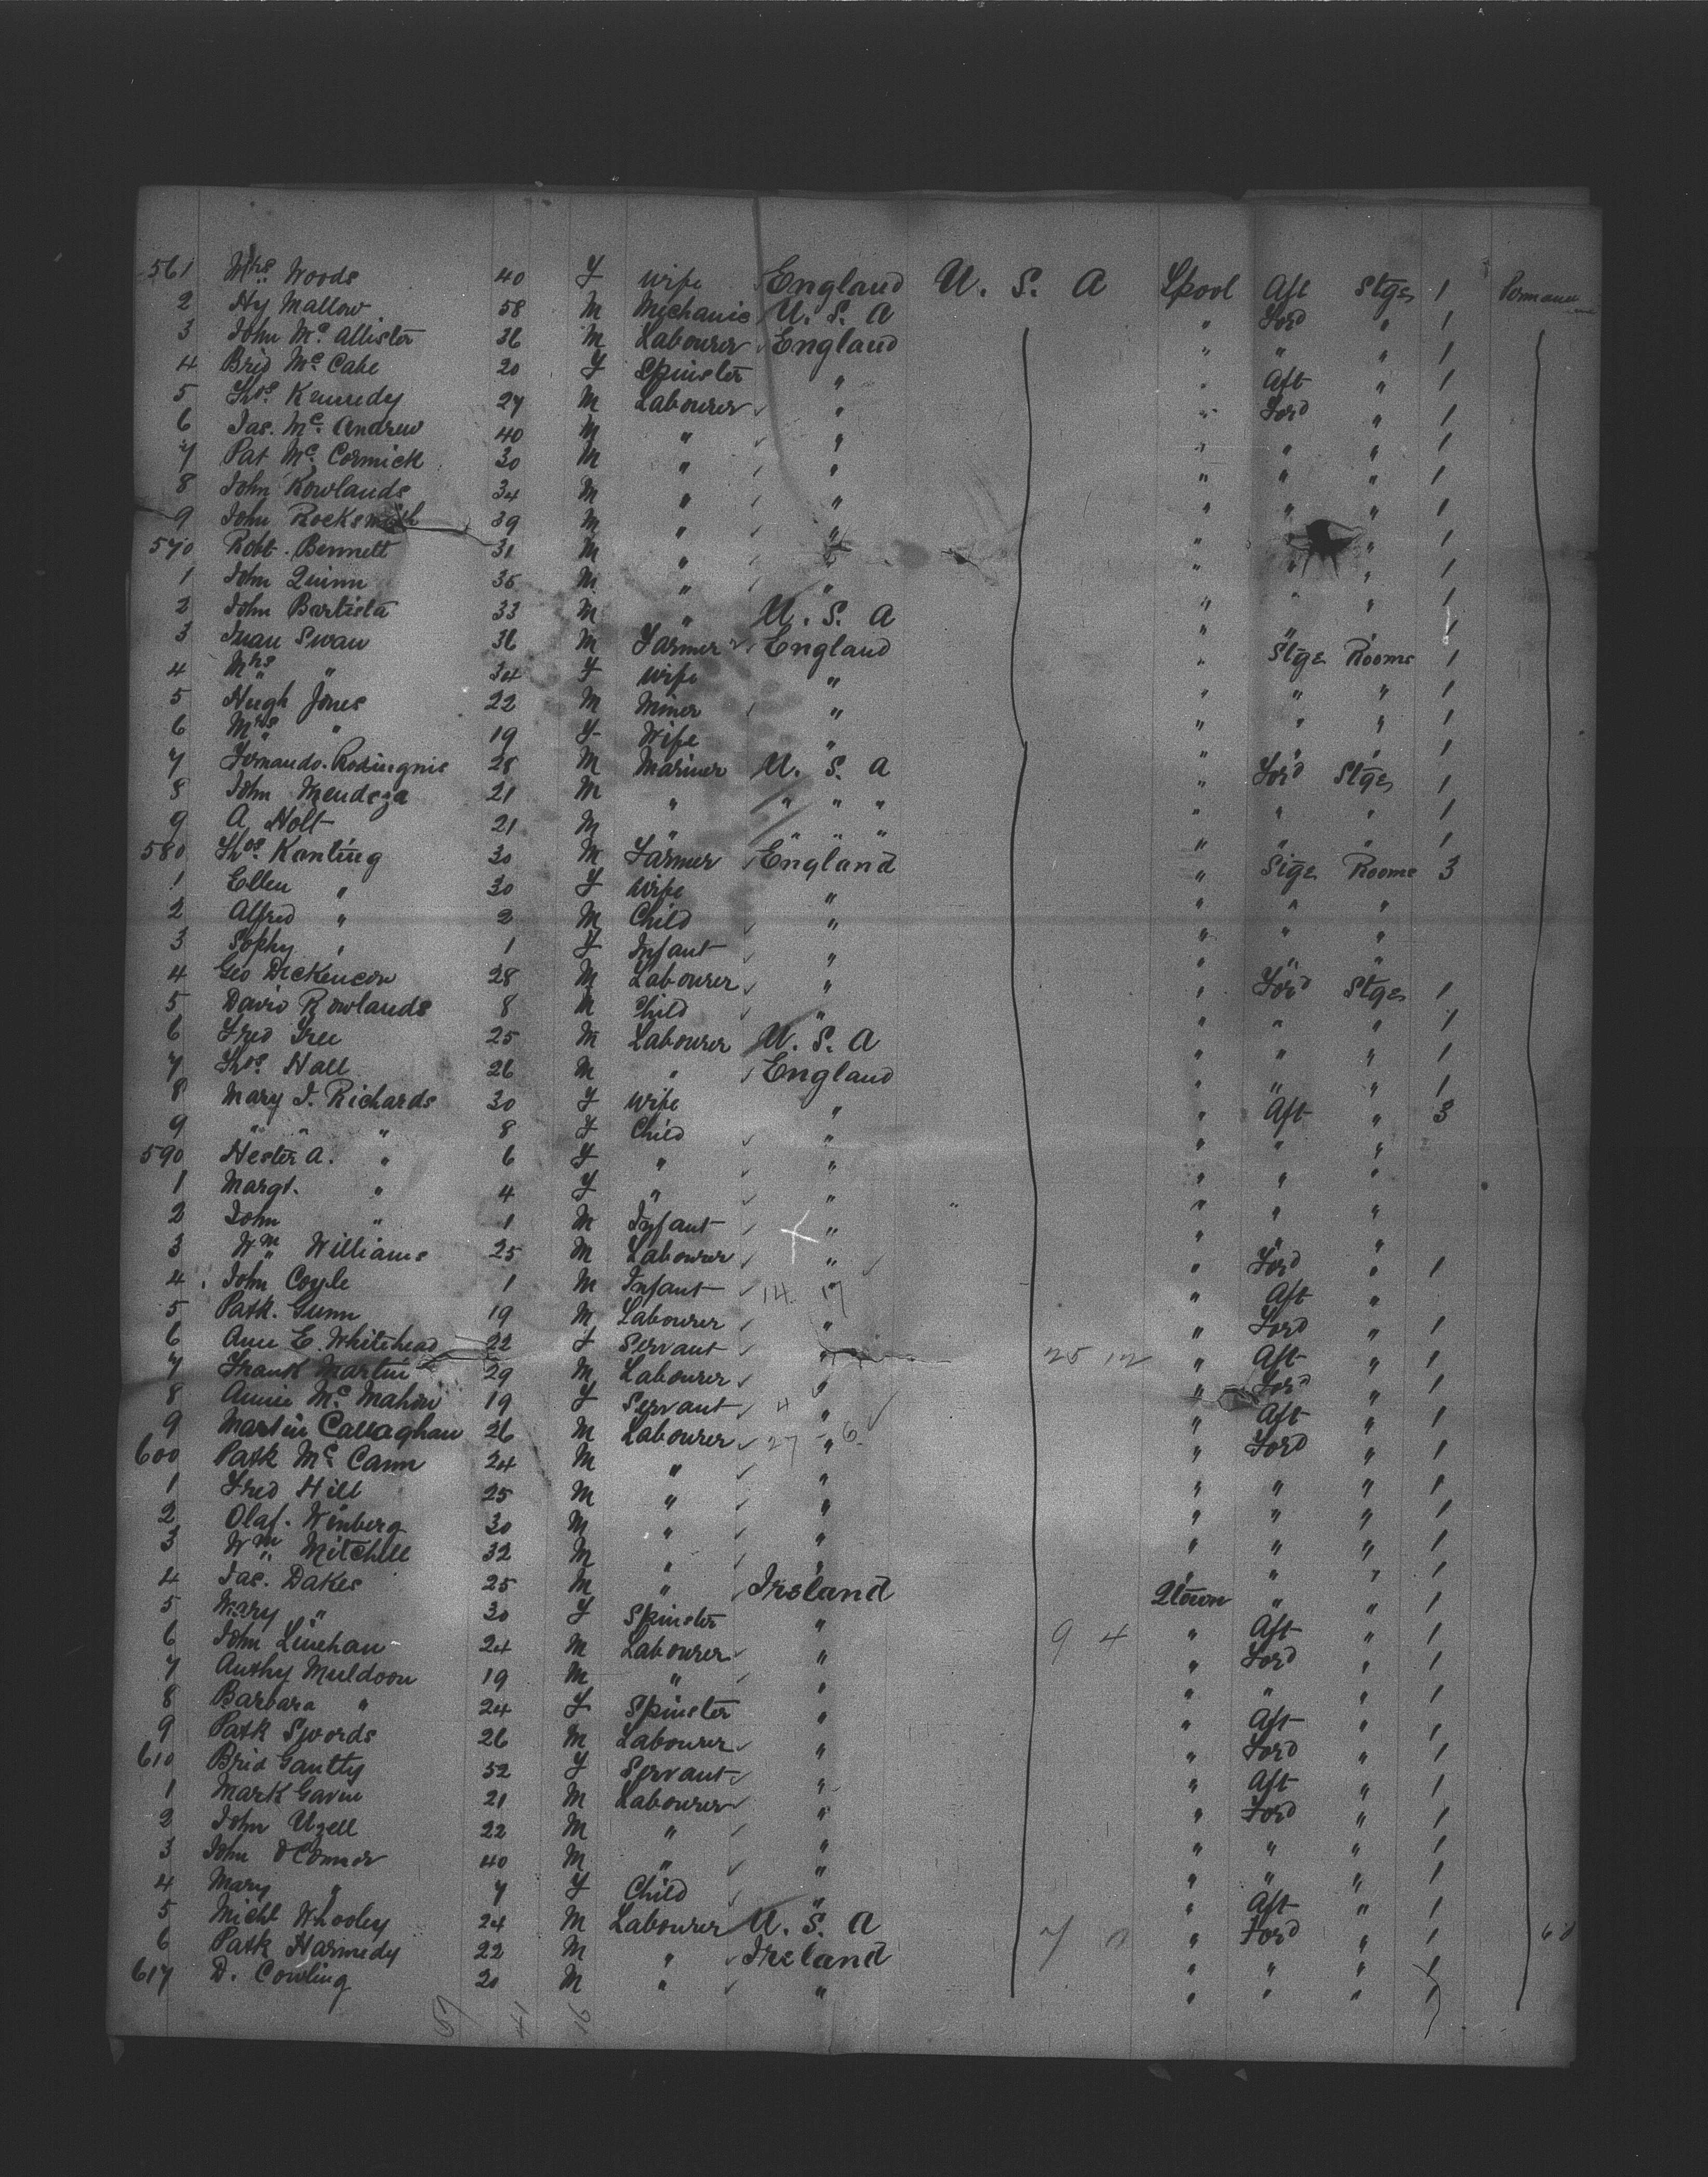 561 Mrs Woods 40 F Wife England U. S. A Lpool Aft Stge 1
2 Hy Mallow 58 M Mechanic U. S. A " Ford " 1
3 John Mc Allister 36 M Labourer England " " " 1
4 Brid Mc Cabe 20 F Spinster " " Aft " 1
5 Thos Kennedy 27 M Labourer " " Ford " 1
6 Jas. Mc Andrew 40 M " " " " " 1
7 Pat Mc Cormick 30 M " " " " " 1
8 John Rowlands 34 M " " " " " 1
9 John Rocksmith 39 M " " " " 1
570 Robt. Bennett 31 M " " " " " 1
1 John Quinn 35 M " " " " " 1
2 John Bartista 33 M " U. S. A " " " 1
3 Juan Swan 36 M Farmer England " Stge Rooms 1
4 Mrs " 34 F Wife " " " " 1
5 Hugh Jones 22 M Miner " " " " 1
6 Mrs " 19 F Wife " " " " 1
7 28 M Mariner U. S. A " Ford Stge 1
8 John Mendoza 21 M " " " " " " " 1
9 A Holt 21 M " " " " " " " 1
580 Thos. Kanting 30 M Farmer England " Stge Rooms 3
1 Ellen " 30 F Wife " " " "
2 Alfred " 2 M Child " " " "
3 Sophy " 1 F Infant " " " "
4 Geo Dickencon 28 M Labourer " " Ford Stge 1
5 David Rowlands 8 M Child " " " " 1
6 Fred Tree 25 M Labourer U. S. A " " " 1
7 Thos. Hall 26 M " England " " " 1
8 Mary J. Richards 30 F Wife " " Aft " 3
9 " " " 8 F Child " " " "
590 Hester A. " 6 F " " " " "
1 Margt. " 4 F " " " " "
2 John " 1 M Infant " " " "
3 Wm Williams 25 M Labourer " " Ford " 1
4 John Coyle 1 M Infant 14 17 " " Aft "
5 Patk. Gunn 19 M Labourer " " Ford " 1
6 Ann E. Whitehead 22 F Servant " 25 12 " Aft " 1
7 Frank Martin 29 M Labourer " " Ford " 1
8 Annie Mc Mahon 19 F Servant 4 " " Aft " 1
9 Martin Callaghan 26 M Labourer 27 " 6 " Ford " 1
600 Patk Mc Cann 24 M " " " " " 1
1 Fred Hill 25 M " " " " " 1
2 Olaf. Winberg 30 M " " " " " 1
3 Wm Mitchell 32 M " " " " " 1
4 Jas. Dakes 25 M " Ireland Qtown " " 1
5 Mary " 30 F Spinster " 9 4 " Aft " 1
6 John Linehan 24 M Labourer " " Ford " 1
7 Anthy Muldoon 19 M " " " " " 1
8 Barbara " 24 F Spinster " " Aft " 1
9 Patk Swords 26 M Labourer " " Ford " 1
610 Brid Gantly 52 F Servant " " Aft " 1
1 Mark Gavin 21 M Labourer " " Ford " 1
2 John Uzell 22 M " " " " " 1
3 John O'Connor 40 M " " " " " 1
4 Mary " 7 F Child " " Aft " 1
5 Michl Whooley 24 M Labourer U. S. A 7 " Ford " 1
6 Patk Harmedy 22 M " Ireland " " " 1
617 D. Cowling 20 M " " " " " 1